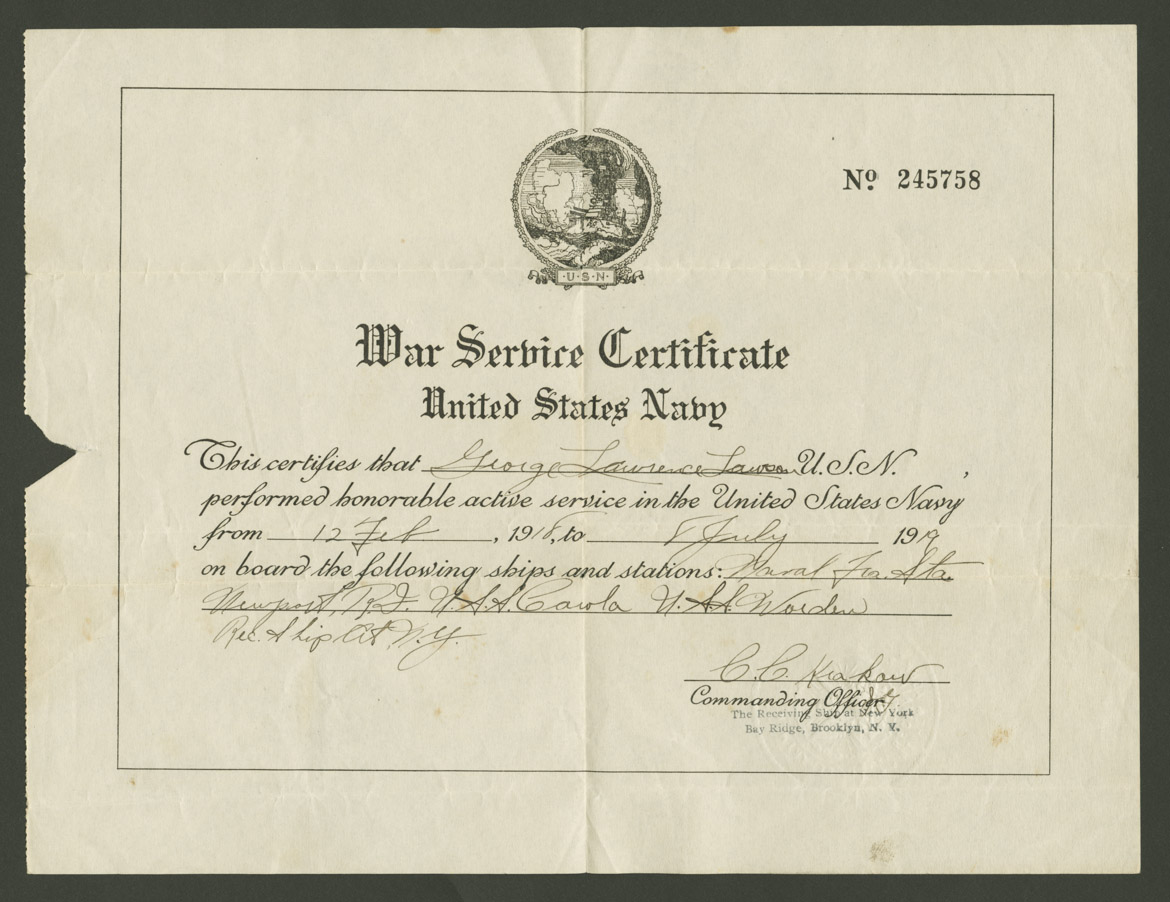 Nº 245758
U·S·N·
War Service Certificate
United States Navy
This certifies that George Lawrence Lawson U.S.N. ,
performed honorable active service in the United States Navy
from 12 Feb , 1918, to 8 July 1919
on board the following ships and stations: Naval Trg. Sta.
Newport R.I. U.S.S. Carola U.S.S. Worden
Rec. Ship At N.Y.
C.C. Krakow
Commanding Officer
The Receiving Ship at New York
Bay Ridge, Brooklyn, N. Y.